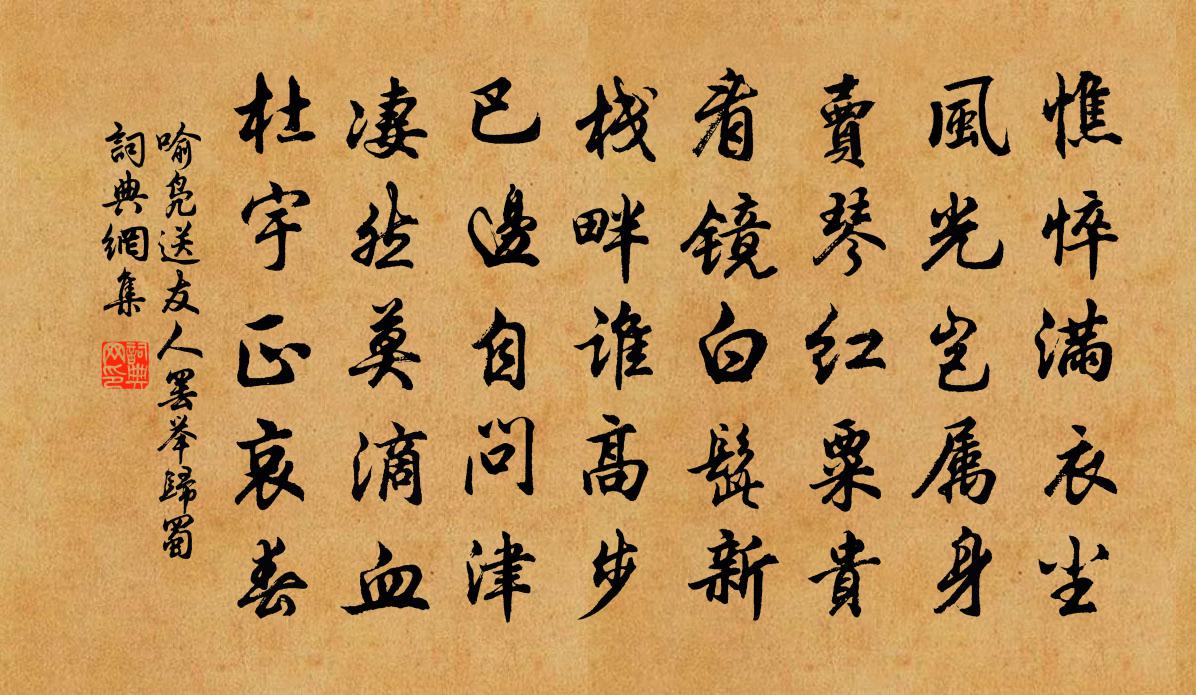 憔悴满衣尘
風光岂属身
賣琴红粟貴
看镜白髭新
栈畔谁高步
巴邊自问津
凄然莫滴血
杜宇正哀春
喻凫送友人罢举歸蜀
詞典網集
詞典网印